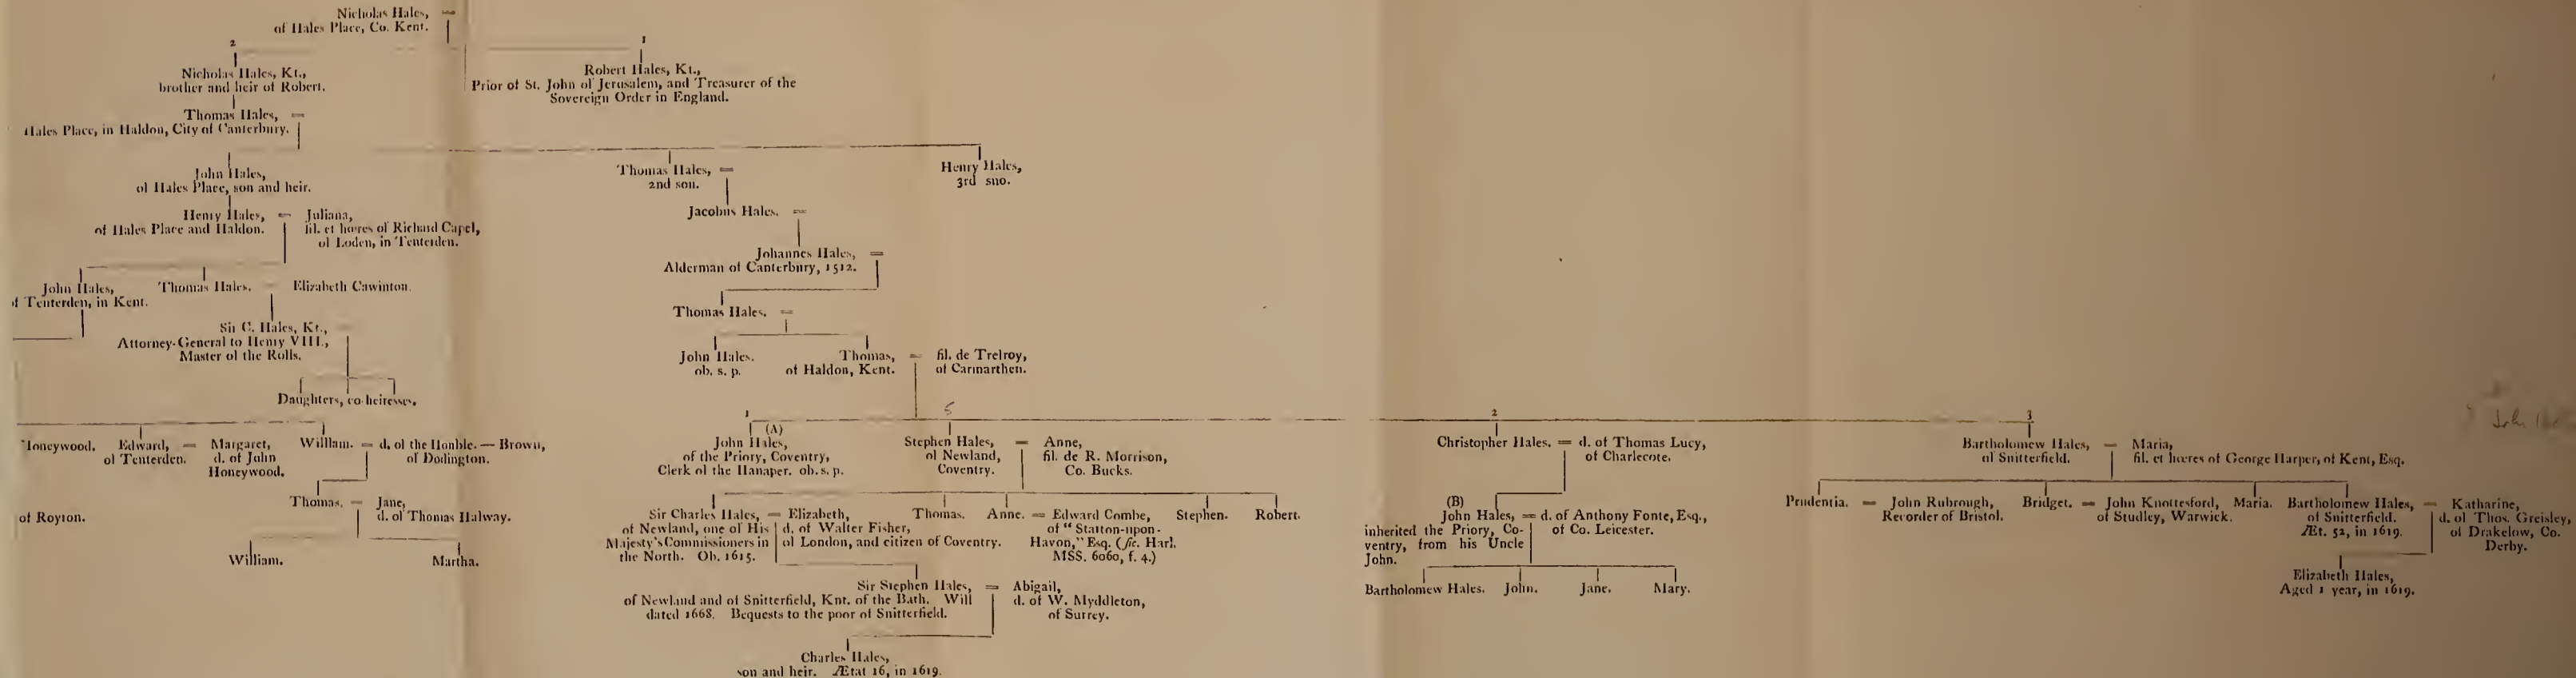 Nicholas Hales,
of Hales Place, Co. Kent.
2
1
Nicholas Hales, Kt.,
brother and heir of Robert.
Robert Hales, Kt.,
Prior of St. John of Jerusalem, and Treasurer of the
Sovereign Order in England.
Thomas Hales,
Hales Place, in Haldon, City of Canterbury.
John Hales,
of Hales Place, son and heir.
Thomas Hales,
2nd son.
Henry Hales,
3rd sno.
Henry Hales,
of Hales Place and Haldon.
Juliana,
fil. et hæres of Richard Capel,
of Loden, in Tenterden.
Jacobus Hales.
Johannes Hales,
Alderman of Canterbury, 1512.
John Hales,
of Tenterden, in Kent.
Thomas Hales.
Elizabeth Cawinton.
Thomas Hales.
Sir C. Hales, Kt.,
Attorney-General to Henry VIII.,
Master of the Rolls.
John Hales.
ob. s. p.
Thomas,
of Haldon, Kent.
fil. de Trelroy,
of Carmarthen.
Daughters, co-heiresses.
1
5
2
3
John
Honeywood.
Edward,
of Tenterden.
Margaret,
d. of John
Honeywood.
William.
d. of the Honble. — Brown,
of Dodington.
(A)
John Hales,
of the Priory, Coventry,
Clerk of the Hanaper. ob. s. p.
Stephen Hales,
of Newland,
Coventry.
Anne,
fil. de R. Morrison,
Co. Bucks.
Christopher Hales. = d. of Thomas Lucy,
of Charlecote.
Bartholomew Hales,
of Snitterfield.
Maria,
fil. et hæres of George Harper, of Kent, Esq.
of Royton.
Thomas.
Jane,
d. of Thomas Halway.
Sir Charles Hales,
of Newland, one of His
Majesty's Commissioners in
the North. Ob. 1615.
Elizabeth,
d. of Walter Fisher,
of London, and citizen of Coventry.
Thomas.
Anne. = Edward Combe,
of "Statton-upon-
Havon," Esq. (sic. Harl.
MSS. 6060, f. 4.)
Stephen.
Robert.
(B)
John Hales,
inherited the Priory, Co-
ventry, from his Uncle
John.
d. of Anthony Fonte, Esq.,
of Co. Leicester.
Prudentia. = John Rubrough,
Recorder of Bristol.
Bridget. = John Knottesford,
of Studley, Warwick.
Maria.
Bartholomew Hales,
of Snitterfield.
Æt. 52, in 1619.
Katharine,
d. of Thos. Greisley,
of Drakelow, Co.
Derby.
William.
Martha.
Sir Stephen Hales,
of Newland and of Snitterfield, Knt. of the Bath. Will
dated 1668. Bequests to the poor of Snitterfield.
Abigail,
d. of W. Myddleton,
of Surrey.
Bartholomew Hales.
John.
Jane.
Mary.
Elizabeth Hales,
Aged 1 year, in 1619.
Charles Hales,
son and heir. Ætat 16, in 1619.